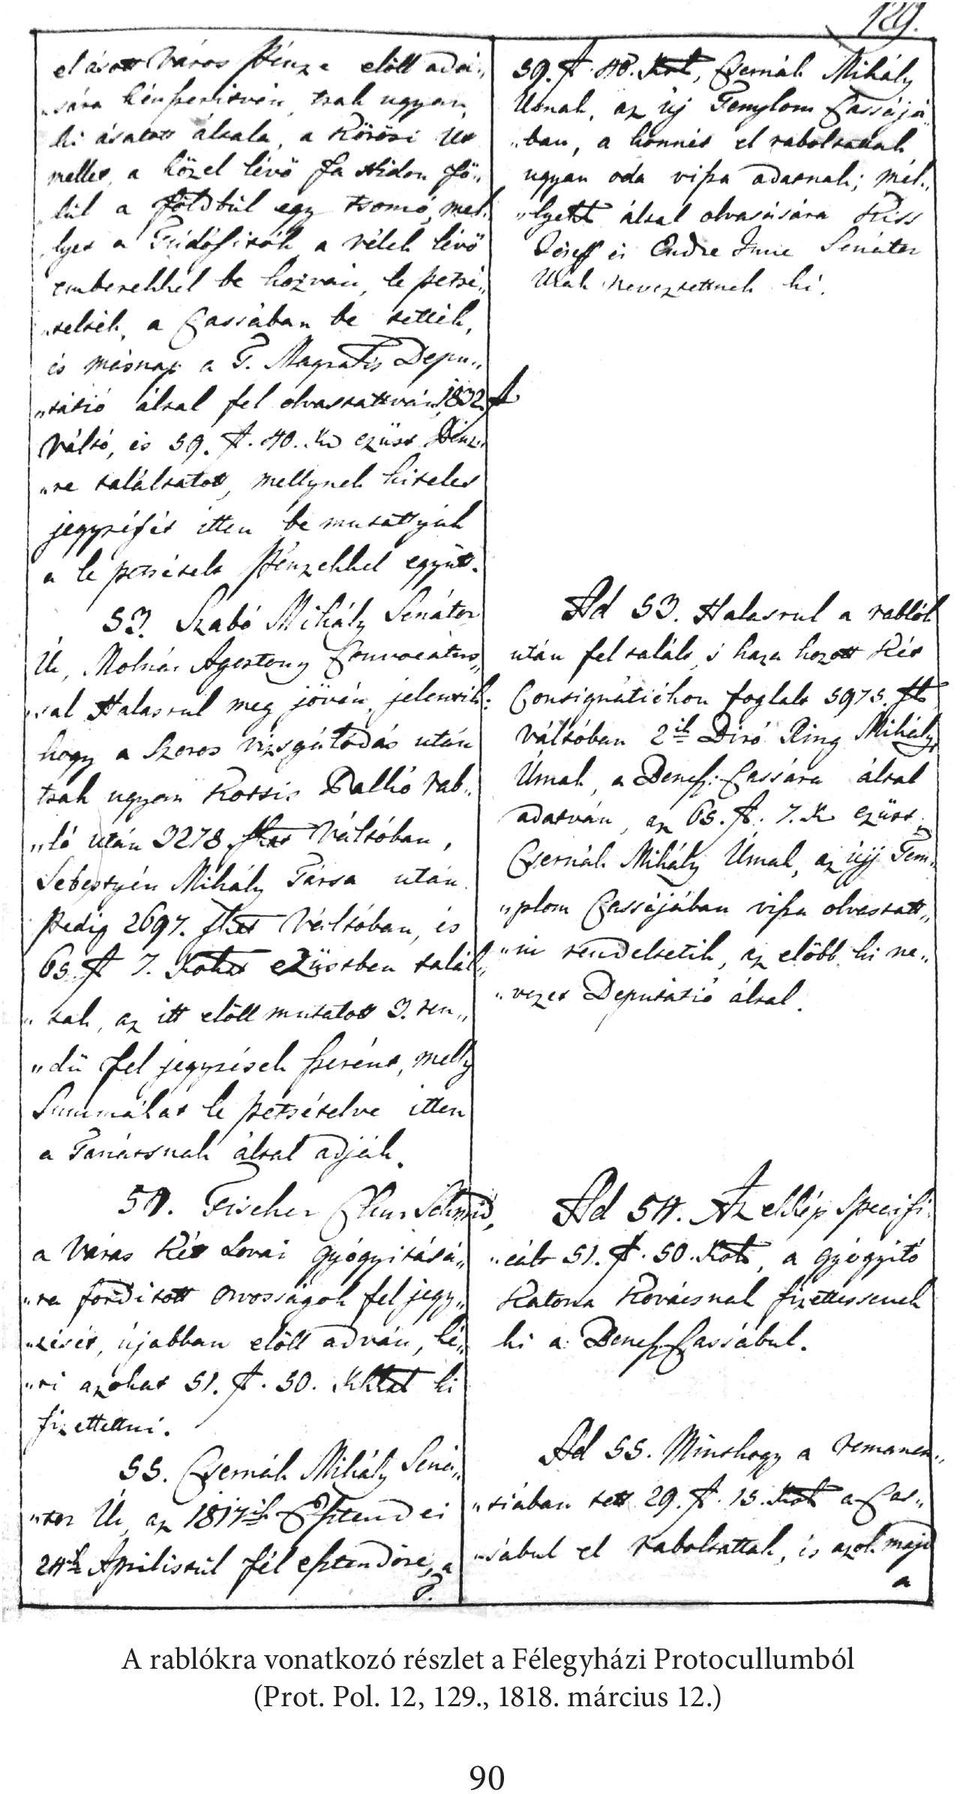 129.
el ásott Város Pénze előtt adá„
„sára kénszeritvén, tsak ugyan
ki ásatott általa, a Körösi Út
mellet, a közel lévő fa Hidon fö„
„lül a földbül egy tsomó, mel„
lyet a Tudósitók a vélek lévő
emberekkel be hozván, le petsé„
„telték, a Cassában be tették,
és másnap a T. Magratis Depu„
„tátió által fel olvastattván, 1832 f
Váltó, és 59. f. 40. Kr ezüst Pénz„
„re találtatott, mellynek hiteles
jegyzését itten bé mutattyák
a le petsételt Pénzekkel együtt.
53. Szabó Mihály Senátor
Úr, Molnár Ágostony Convocátus„
„sal Halasrul meg jövén, jelentik:
hogy a Szoros vizsgálódás után
tsak ugyan Kotsis Palkó rab„
„ló után 3278. ftot Váltóban,
Sebestyén Mihály Társa után
Pedig 2697. ftot Váltóban, és
65. f 7. Krt ezüstben talál„
„tak, az itt előll mutatott 3. ren„
„dü fel jegyzések szerént, melly
Summákat le petsételve itten
a Tanátsnak által adják.
54. Fischer Chir. Schmid,
a Város Két Lovai gyógyitásá„
„ra forditott orvosságok fel jegy„
„zését, újabban előll adván, ké„
„ri azokat 51. f. 50. Krkkal ki
fizettettni.
55. Csernák Mihály Sená„
„tor Úr, az 1817ik Esztendei
24k Aprilistül fél esztendőre, a
59. f. 40. Krt, Csernák Mihály
Úrnak, az Új Templom Cassájá„
„ban, a honnét el raboltattak
ugyan oda vissza adatnak; mel„
„lyek által olvasására Kiss
Jósef és Endre Imre Senátor
Urak neveztettnek ki.
Ad 53. Halasrul a rablók
után fel talált, 's haza hozott Két
Consignátiókon foglalt 5975. ft
váltóban 2ik Biró Ring Mihály
Úrnak, a Benef. Cassára által
adatván, az 65. f. 7. Kr ezüst
Csernák Mihály Úrnak, az újj Tem„
„plom Cassájában vissza olvastatt„
„ni rendeltetik, az előbb ki ne„
„vezet Deputátió által.
Ad 54. Az ekkép Specifi„
„cált 51. f. 50. Krt, a gyógyitó
Katona Kovácsnak fizettessenek
ki a Benef. Cassábul.
Ad 55. Minthogy a remanen„
„tiában tett 29. f. 15. Krt a Cas„
„sábul el raboltattak, és azok majd
a
A rablókra vonatkozó részlet a Félegyházi Protocullumból
(Prot. Pol. 12, 129., 1818. március 12.)
90